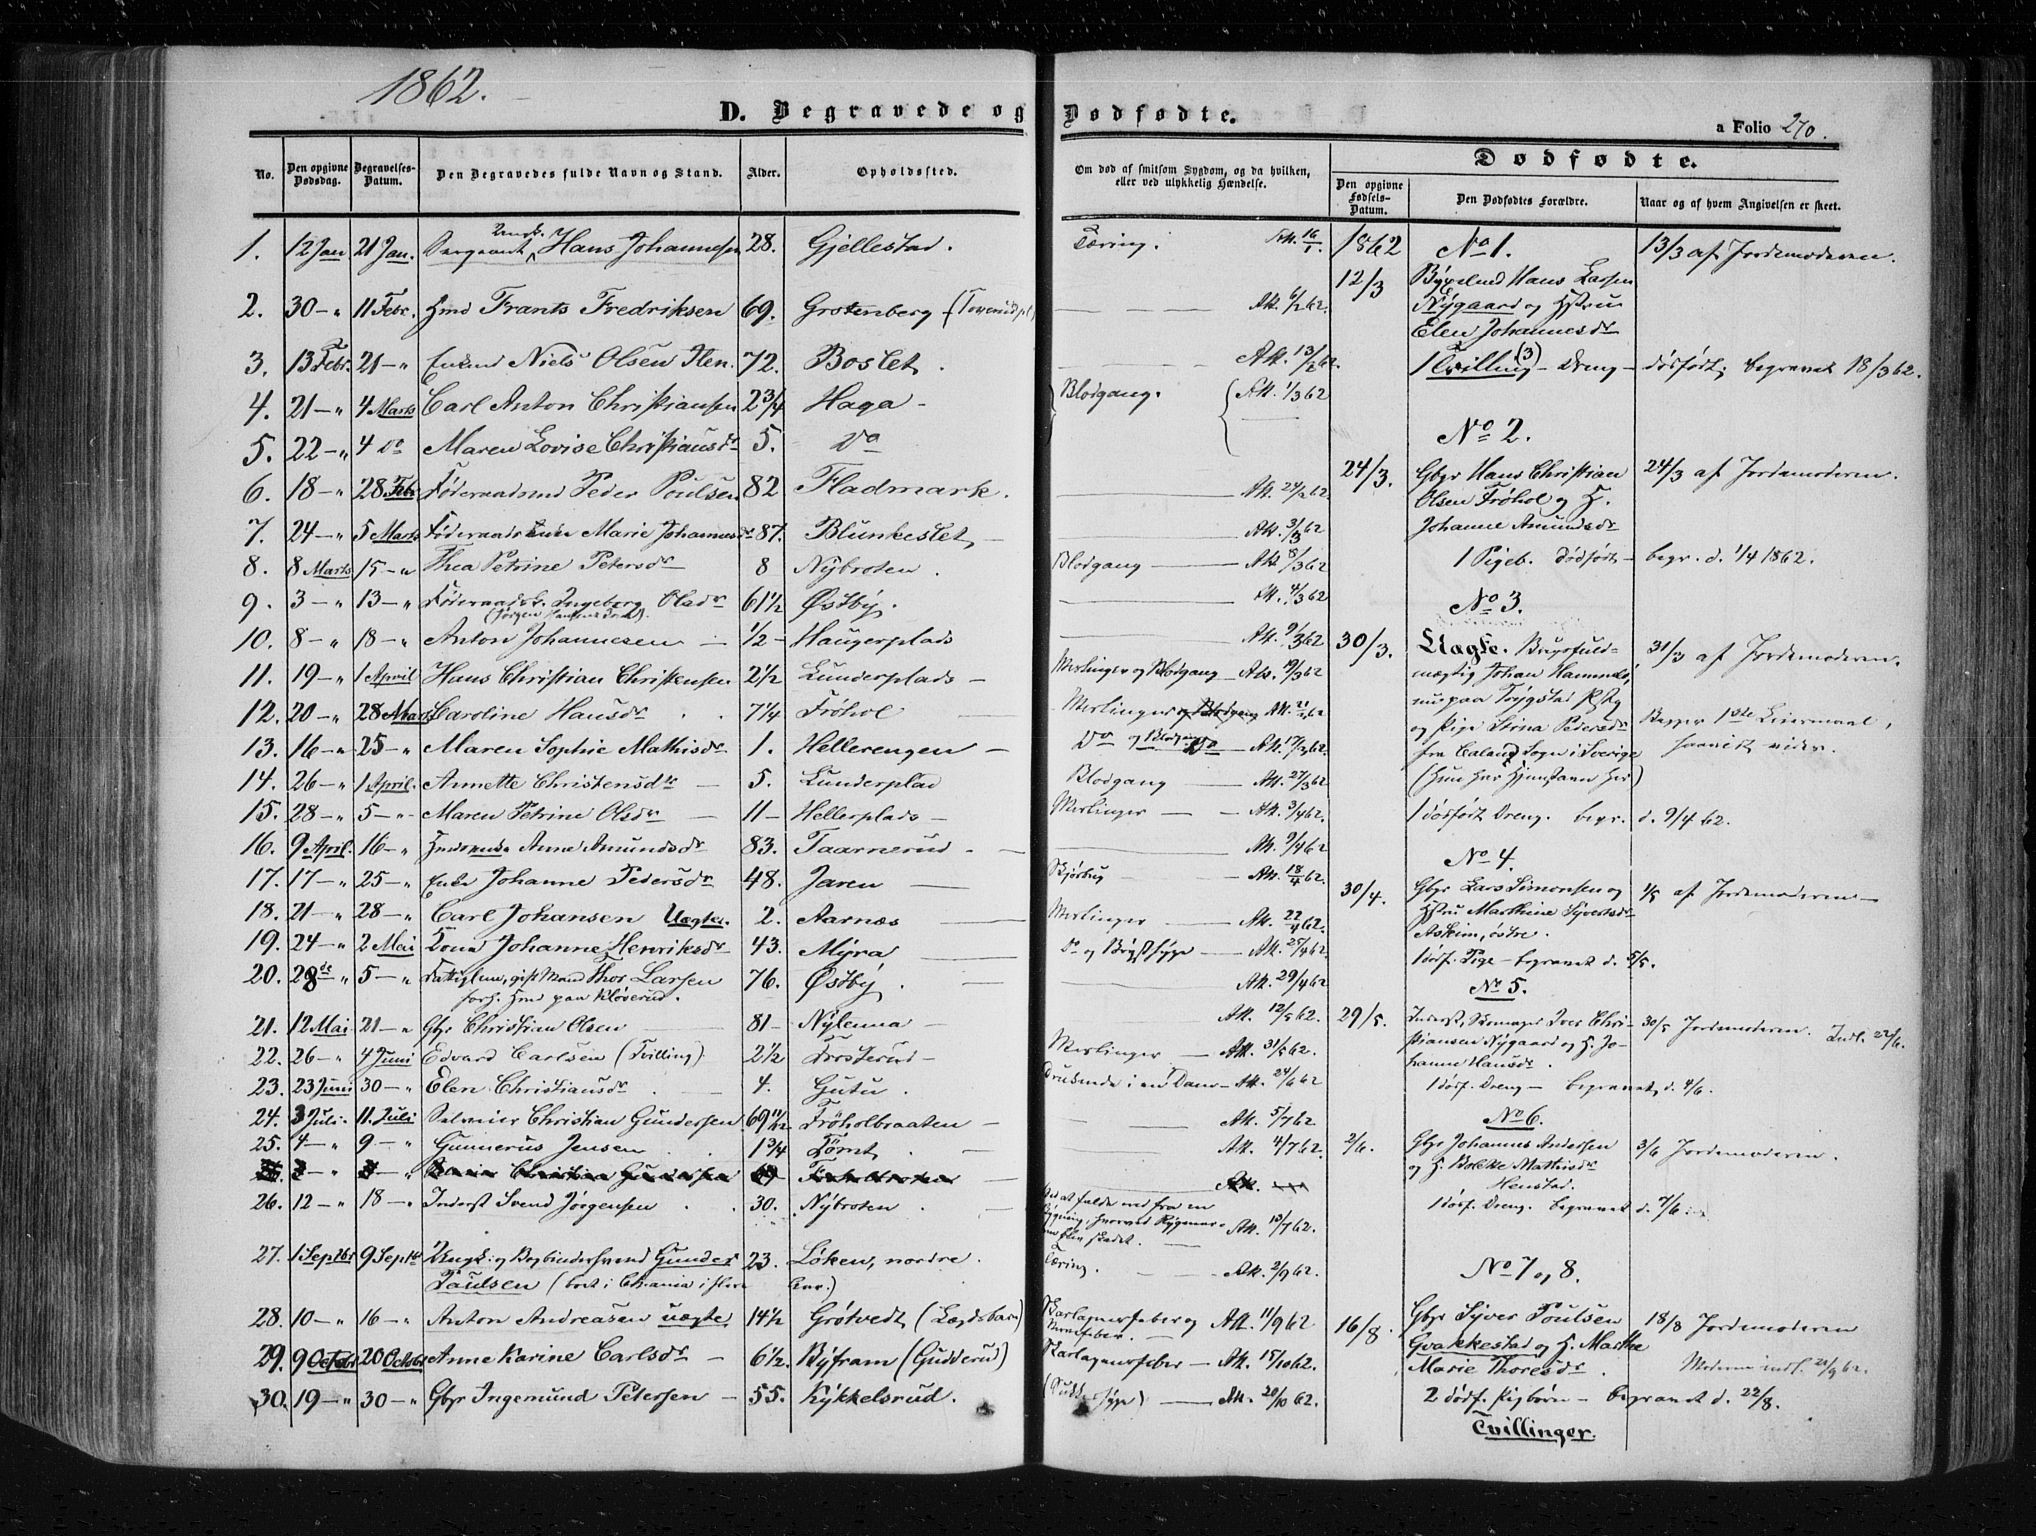 1862.
D. Begravede og Dødfødte.
a Folio 270.
No. Den opgivne Dødsdag. Begravelses-Datum. Den Begravedes fulde Navn og Stand. Alder. Opholdssted. Om død af smitsom Sygdom, og da hvilken, eller ved ulykkelig Hændelse.
Dødfødte.
Den opgivne Fødsels-Datum. Den Dødfødtes Forældre. Naar og af hvem Angivelsen er skeet.
1. 12 Jan 21 Jan. Sergeant, Ungk. Hans Johannesen 28. Gjellestad. Tæring. Att. 16/1.
2. 30 - " 11 Febr. Hmd Frants Fredriksen 69. Grotenberg Att. 6/2 62.
3. 13 Febr. 21 - " Enkmd Niels Olsen Sten. 72. Boslet. Att. 13/2 62.
4. 21 - " 4 Marts Carl Anton Christiansen 2 3/4 Haga - Blodgang. Att. 1/3 62
5. 22 - " 4 do Maren Lovise Christiansdr 5. do
6. 18 - " 28 Febr Føderaadsmd Peder Poulsen 82 Fladmark. Att. 24/2 62.
7. 24 - " 5 Marts Føderaads Enke Marie Johannesdr 87. Blunkeslet, Att. 3/3 62
8. 8 Marts 15 - " Thea Petrine Petersdr 8 Nybroten. Blodgang Att. 8/3 62
9. 3 - " 13 - " Føderaadsk. Ingeborg Olsdr 61 1/2 Østby. Att. 4/3 62
10. 8 - " 18 - " Anton Johannesen 1/2 - Haugerplads Att. 9/3 62
11. 19 - " 1 April Hans Christian Christensen 2 1/2 Lunderplads - Meslinger og Blodgang - Att. 19/3 62
12. 20 - " 28 Marts Caroline Hansdr 7 1/4 Frøhol Meslinger og Blodgang Att. 21/3 62
13. 16 - " 25 - " Maren Sophie Mathisdr 1. Hellerengen - do og Blodgang Att. 17/3 62.
14. 26 - " 1 April. Annette Christensdr 5. Lunderplad Blodgang Att. 27/3 62
15. 28 - " 5 - " Maren Petrine Olsdr 11 - Hellerplads - Meslinger Att. 3/4 62.
16. 9 April. 16 - " Hmdsenke Anne Amundsdr 83. Taarnerud - Att. 9/4 62
17. 17 - " 25 - " Enke Johanne Pedersdr 48. Jaren Skjørbug Att. 18/4 62.
18. 21 - " 28 - " Carl Johansen Uægte. 2. Aarnæs Meslinger Att. 22/4 62.
19. 24 - " 2 Mai Kona Johanne Henriksdr 43. Myra do og Brystsyge Att. 25/4 62.
20. 28de " 5 - " Fattiglem, gift Mand Thor Larsen 76. Østby. Att. 29/4 62
forh. Hmd paa Kløverud.
21. 12 Mai 21 - " Gbr Christian Olsen 81 - Nylenna - Att. 12/5 62.
22. 26 - " 4 Juni Edvard Carlsen (Tvilling) 2 1/2 Frosterud - Meslinger - Att. 31/5 62.
23. 23 Juni 30 - " Elen Christiansdr 4. Gutu. Druknede i en Dam - Att. 24/6 62
24. 3 Juli. 11. Juli Christian Gundersen 69 11/12 Frøholbraaten - Att. 5/7 62
25. 4 - " 9 - " Gunnerus Jensen 1 3/4 Tømt. Att. 4/7 62.
26. 12 - " 18 - " Inderst Svend Jørgensen 30. Nybroten. Ved at falde ned fra en Bygning, hvorved Rygmarven blev skadet. Att. 13/7 62.
27. 1 Septbr 9 Septbr Ungk. og Bogbindersvend Gunder Paulsen 23. Løken, nordre. Tæring. Att. 2/9 62.
28. 10 - " 16 - " Anton Andreasen uægte 14 1/2 Grøtvedt (Lægdsbarn) Skarlagensfeber og Nervefeber. Att. 11/9 62
29. 9 Octobr 20 Octobr Anne Karine Carlsdr 6 1/2. Byfram (Gudderud) Skarlagensfeber - Att. 15/10 62.
30. 19 - " 30 - " Gbr Ingemund Petersen - 55. Kykkelsrud. Att. 20/10 62.
1862 No 1. 13/3 af Jordemoderen.
12/3 Hans Larsen
Nygaard og Hstru
Elen Johannesdr
1 Tvilling (3) - Dreng - dødfødt; begravet 18/3 62.
No 2.
24/3. Gbr Hans Christian 24/3 af Jordemoderen.
Olsen Frøhol og H.
Johanne Amundsdr
1 Pigeb. dødfødt - begr. d. 1/4 1862.
No 3.
30/3. Uægte. Brugsfuld- 31/3 af Jordemoderen.
mægtig Johan
nu paa Trygstad
og Pige Stina Pedersdr Begges 1ste Leiermaal,
fra Sogn i Sverige saavidt vides.
(Hun har Hjemstavn her)
1 dødfødt Dreng. begr. d. 9/4 62.
No 4.
30/4. Gbr Lars Simonsen og 1/5 af Jordemoderen -
Hstru Marthine Syvertsdr
Askim, østre.
1 dødf. Pige - begravet d. 5/5.
No 5.
29/5. Inderst, Skomager Iver Chri- 30/5 Jordemoderen. Indl. 22/6.
stiansen Nygaard og H. Jo-
hanne Hansdr
1 dødf. Dreng - begravet, d. 4/6.
No 6.
2/6. Gbr Johannes Andersen 3/6 Jordemoderen.
og H. Bolette Mathisdr
Henstad.
1 dødf. Dreng. begravet d. 7/6.
No 7 og 8.
16/8. Gbr Syver Poulsen 18/8 Jordemoderen
Gvakkestad og H. Marthe
Marie Thoresdr Moderen indl. 21/9 62.
2 dødf. Pigbørn - begravet d. 22/8.
Tvillinger.